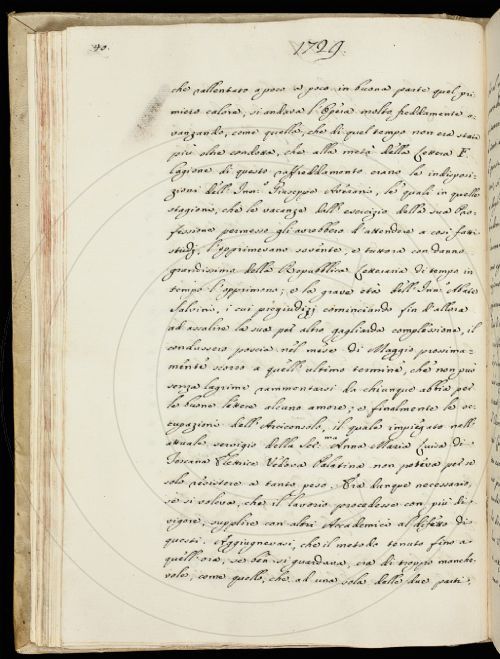 40.
1729.
che rallentato a poco a poco in buona parte quel pri-
miero calore, si andava l'Opera molto freddamente a-
vanzando, come quella, che di quel tempo non era stata
più oltre condotta, che alla metà della Lettera F.
Cagione di questo raffreddamento erano le indisposi-
zioni dell'Inn. Giuseppe Averani, le quali in quelle
stagioni, che le vacanze dall'esercizio della sua Pro-
fessione permesso gli avrebbero d'attendere a così fatti
studj, l'opprimevano sovente, e tuttora con danno
grandissimo della Repubblica Letteraria di tempo in
tempo l'opprimono; e la grave età dell'Inn. Abate
Salvini, i cui pregiudizj cominciando fin d'allora
ad assalire la sua per altro gagliarda complessione, il
condussero poscia nel mese di Maggio prossima-
mente scorso a quell'ultimo termine, che non può
senza lagrime rammentarsi da chiunque abbia per
le buone lettere alcuno amore; e finalmente le oc-
cupazioni dell'Arciconsolo, il quale impiegato nell'
attuale servigio della Ser.ma Anna Maria Luisa di
Toscana Elettrice Vedova Palatina non poteva per se
solo resistere a tanto peso. Era dunque necessario,
se si voleva, che il lavorio procedesse con più di
vigore, supplire con altri Accademici al difetto di
questi. Aggiugnevasi, che il metodo tenuto fino a
quell'ora, se ben si guardava, era di troppo manche-
vole, come quello, che ad una sola delle due parti,